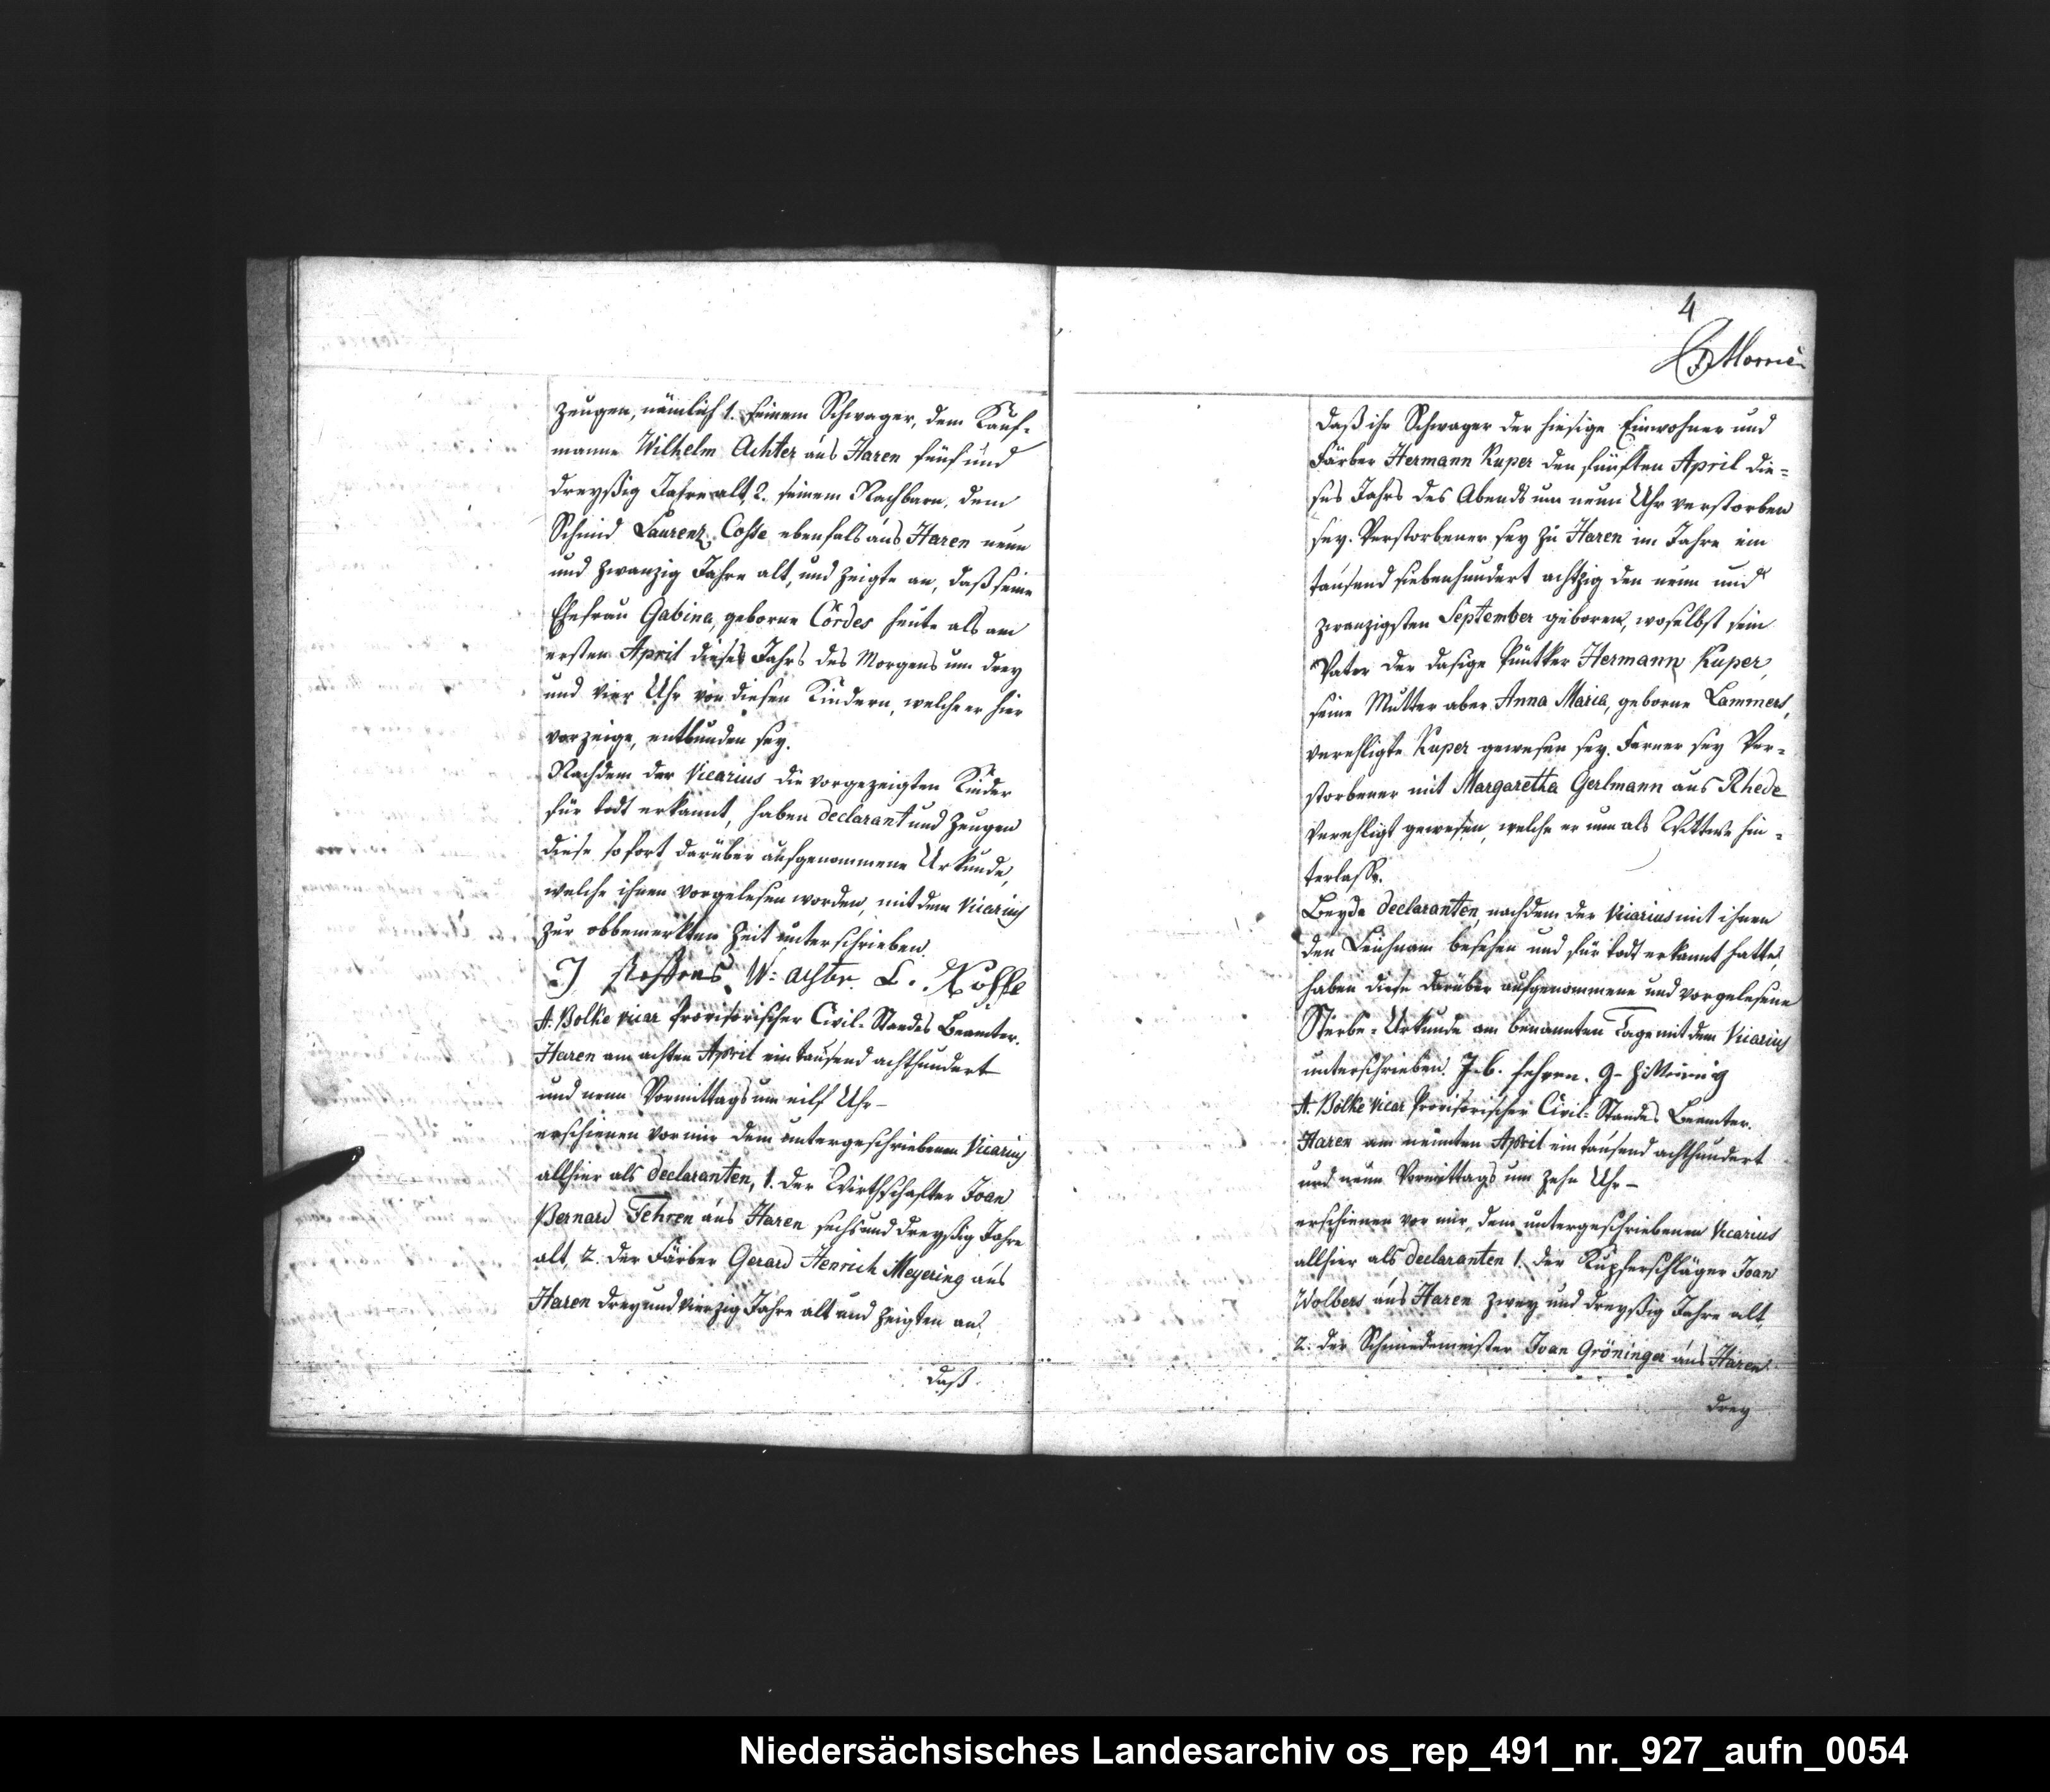 Zeugen, nämlich 1. seinem Schwager, dem Kauf-
manne Wilhelm Achter aus Haren fünf und
dreyßig Jahre alt, 2. seinem Nachbarn, dem
Schmid Laurenz Cosse ebenfals aus Haren neun
und zwanzig Jahre alt, und zeigte an, daß seine
Ehefrau Gabina, geborne Cordes heute als am
ersten April dieses Jahrs des Morgens um drey
und vier Uhr von diesen Kindern, welche er hier
vorzeige, entbunden sey.
Nachdem der Vicarius die vorgezeigten Kinder
für todt erkannt, haben declarant und Zeugen
diese sofort darüber aufgenommene Urkunde,
welche ihnen vorgelesen worden, mit dem Vicarius
zur obbemerkten Zeit unterschrieben.
J W: Achter. L. Kosse
A. Bolke vicar Provisorischer Civil-Standes Beamter.
Haren am achten April ein tausend achthundert
und neun Vormittags um eilf Uhr –
erschienen vor mir dem untergeschriebenen Vicarius
allhier als declaranten, 1. der Wirthschafter Joan
Bernard Fehren aus Haren sechs und dreyßig Jahre
alt, 2. der Färber Gerard Henrich Meyering aus
Haren drey und vierzig Jahre alt und zeigten an,
daß
4
daß ihr Schwager der hiesige Einwohner und
Färber Hermann Kuper den fünften April die-
ses Jahrs des Abends um neun Uhr verstorben
sey. Verstorbener sey zu Haren im Jahre ein
tausend siebenhundert achtzig den neun und
zwanzigsten September geboren, woselbst sein
Vater der dasige Püntker Hermann Kuper,
seine Mutter aber Anna Maria, geborne Lammers,
verehligte Kuper gewesen sey. Ferner sey Ver-
storbener mit Margaretha Gerlmann aus Rhede
verehligt gewesen, welche er nun als Wittwe hin-
terlasse.
Beyde declaranten, nachdem der Vicarius mit ihnen
den Leichnam besehen und für todt erkannt hatte,
haben diese darüber aufgenommene und vorgelesene
Sterbe-Urkunde am benannten Tage mit dem Vicarius
unterschrieben. J. b. fehren. G- H Meiering
A. Bolke vicar Provisorischer Civil-Standes Beamter.
Haren am neunten April ein tausend achthundert
und neun Vormittags um zehn Uhr –
erschienen vor mir, dem untergeschriebenen Vicarius
allhier als declaranten 1. der Kupferschläger Joan
Wolbers aus Haren zwey und dreyßig Jahre alt,
2. der Schmiedemeister Joan Gröninger aus Haren
drey
Niedersächsisches Landesarchiv os_rep_491_nr._927_aufn_0054